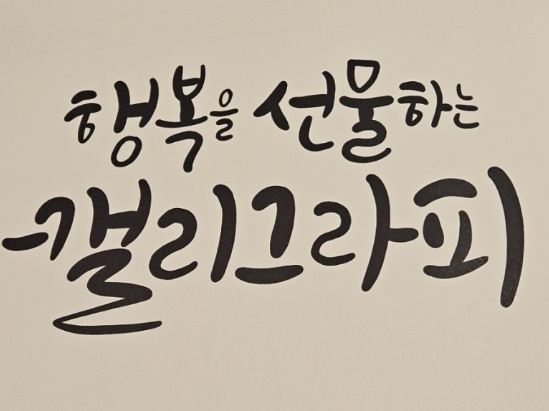 행복을 선물하는
캘리그라피